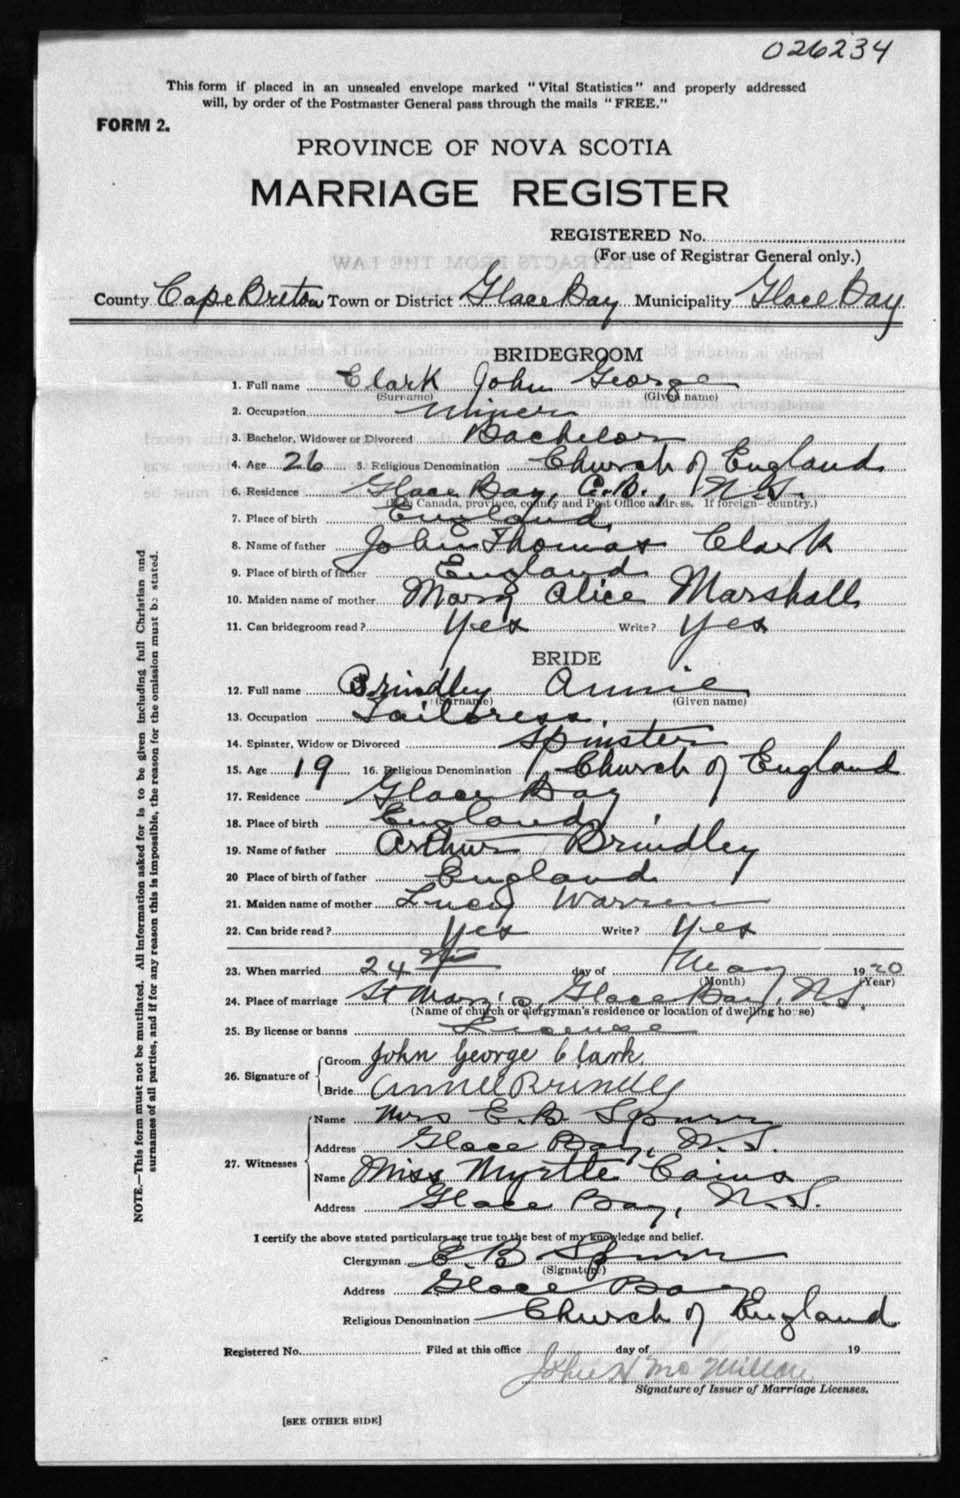 026234
This form if placed in an unsealed envelope marked "Vital Statistics" and properly addressed
will, by order of the Postmaster General pass through the mails "FREE."
FORM 2.
PROVINCE OF NOVA SCOTIA
MARRIAGE REGISTER
REGISTERED No.
(For use of Registrar General only.)
County Cape Breton Town or District Glace Bay Municipality Glace Bay
BRIDEGROOM
1. Full name Clark John George
(Surname) (Given name)
2. Occupation Miner
3. Bachelor, Widower or Divorced Bachelor
4. Age 26 5. Religious Denomination Church of England
6. Residence Glace Bay, C.B., N.S.
(If in Canada, province, county and Post Office address. If foreign—country.)
7. Place of birth England
8. Name of father John Thomas Clark
9. Place of birth of father England
10. Maiden name of mother Mary Alice Marshall
11. Can bridegroom read? Yes Write? Yes
BRIDE
12. Full name Brindley Annie
(Surname) (Given name)
13. Occupation Tailoress.
14. Spinster, Widow or Divorced Spinster
15. Age 19 16. Religious Denomination Church of England
17. Residence Glace Bay
18. Place of birth England
19. Name of father Arthur Brindley
20 Place of birth of father England
21. Maiden name of mother Lucy Warren
22. Can bride read? Yes Write? Yes
23. When married 24th day of May 1920
(Month) (Year)
24. Place of marriage St Mary's, Glace Bay, N.S.
(Name of church or clergyman's residence or location of dwelling house)
25. By license or banns License
26. Signature of Groom John George Clark
Bride Annie Brindley
27. Witnesses Name Mrs E.B Spurr
Address Glace Bay, N.S.
Name Miss Myrtle Cains
Address Glace Bay, N.S.
I certify the above stated particulars are true to the best of my knowledge and belief.
Clergyman E. B Spurr
(Signature)
Address Glace Bay
Religious Denomination Church of England
Registered No. Filed at this office day of 19
John H McMillan
Signature of Issuer of Marriage Licenses.
[SEE OTHER SIDE]
NOTE.—This form must not be mutilated. All information asked for is to be given including full Christian and
surnames of all parties, and if for any reason this is impossible, the reason for the omission must be stated.